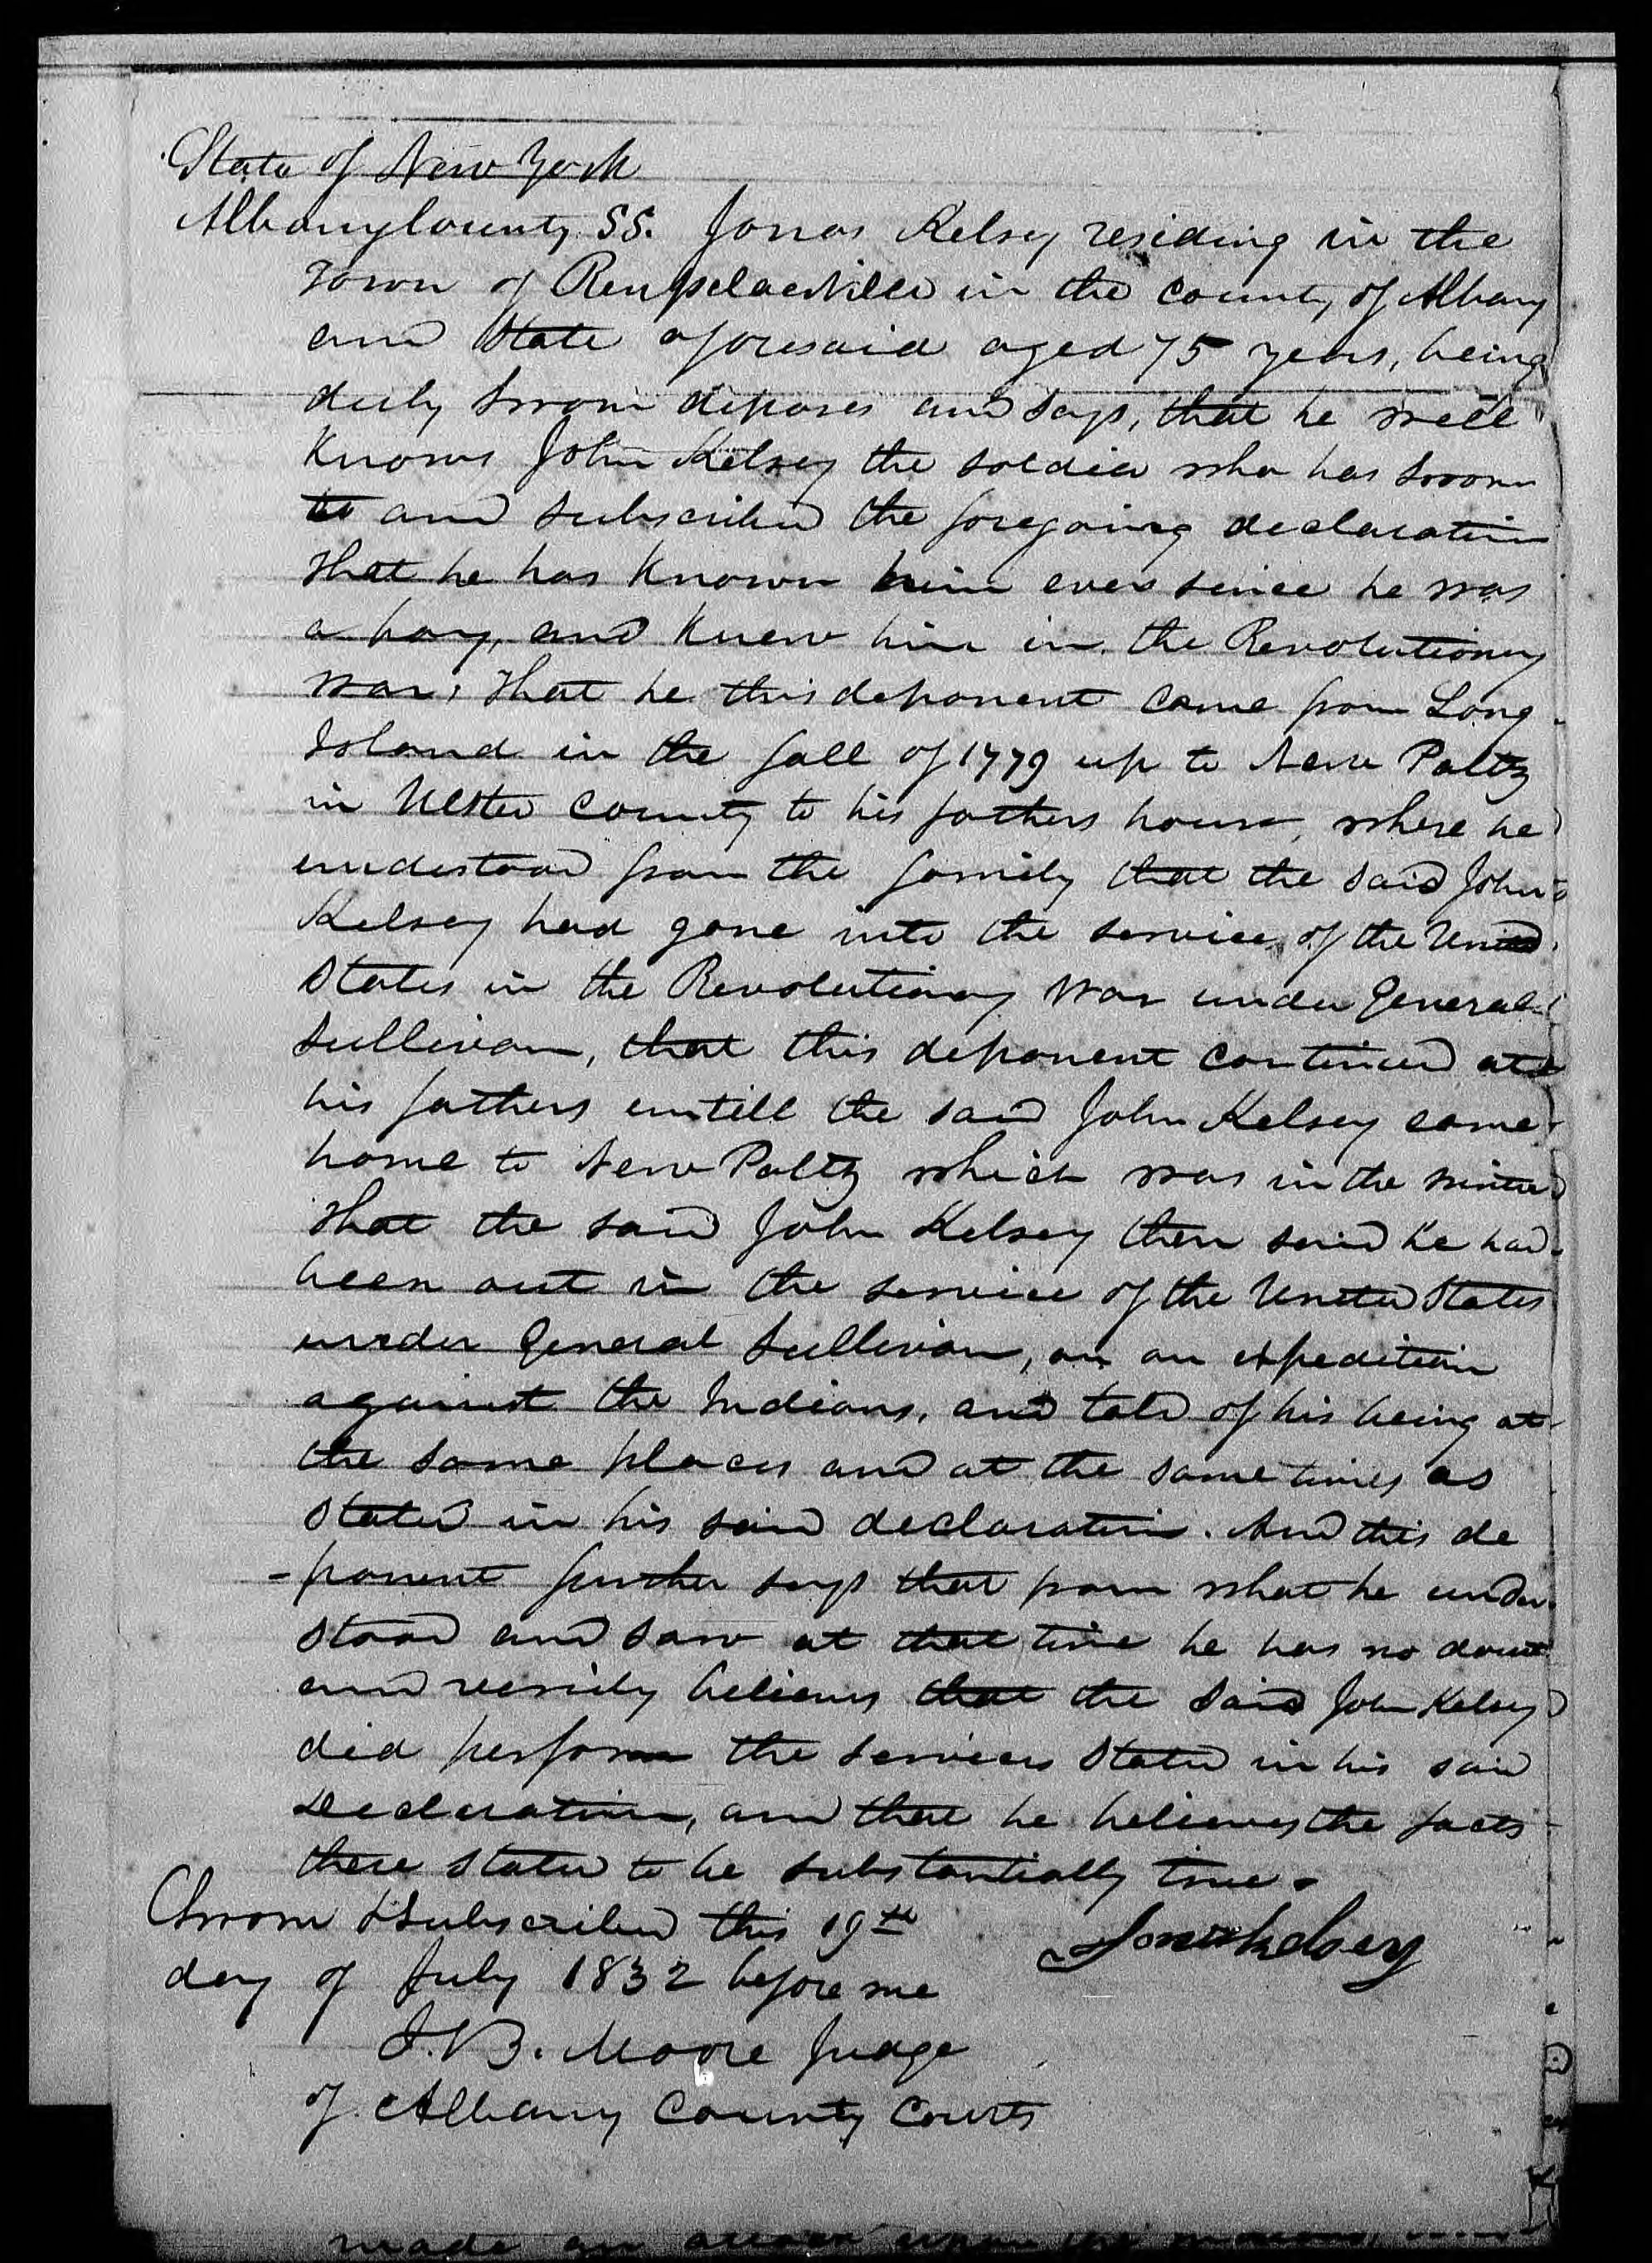 State of New York
Albany County SS. Jonas Kelsey residing in the
Town of Rensselaerville in the County of Albany
and State aforesaid aged 75 years, being
duly Sworn deposes and Says, that he well
Knows John Kelsey the soldier who has Sworn
to and Subscribed the foregoing declaration
that he has Known him ever since he was
a boy, and Knew him in the Revolutionary
war, that he this deponent Came from Long
Island in the fall of 1779 up to New Paltz
in Ulster County to his fathers house, where he
understood from the family that the said John
Kelsey had gone into the service of the United
States in the Revolutionary War under General
Sullivan, that this deponent continued at
his fathers untill the said John Kelsey came
home to New Paltz which was in the winter
that the said John Kelsey then said he had
been out in the service of the United States
under General Sullivan, on an expedition
against the Indians, and told of his being at
the same places and at the same times as
Stated in his said declaration. And this de
-ponent further says that from what he under
stood and saw at that time he has no doubt
and verily believes that the said John Kelsey
did perform the services Stated in his said
declaration, and that he believes the facts
there stated to be substantially true.
Sworn & Subscribed this 19th
Jonas Kelsey
day of July 1832 before me
J.B. Moore Judge
of Albany County Courts
made an